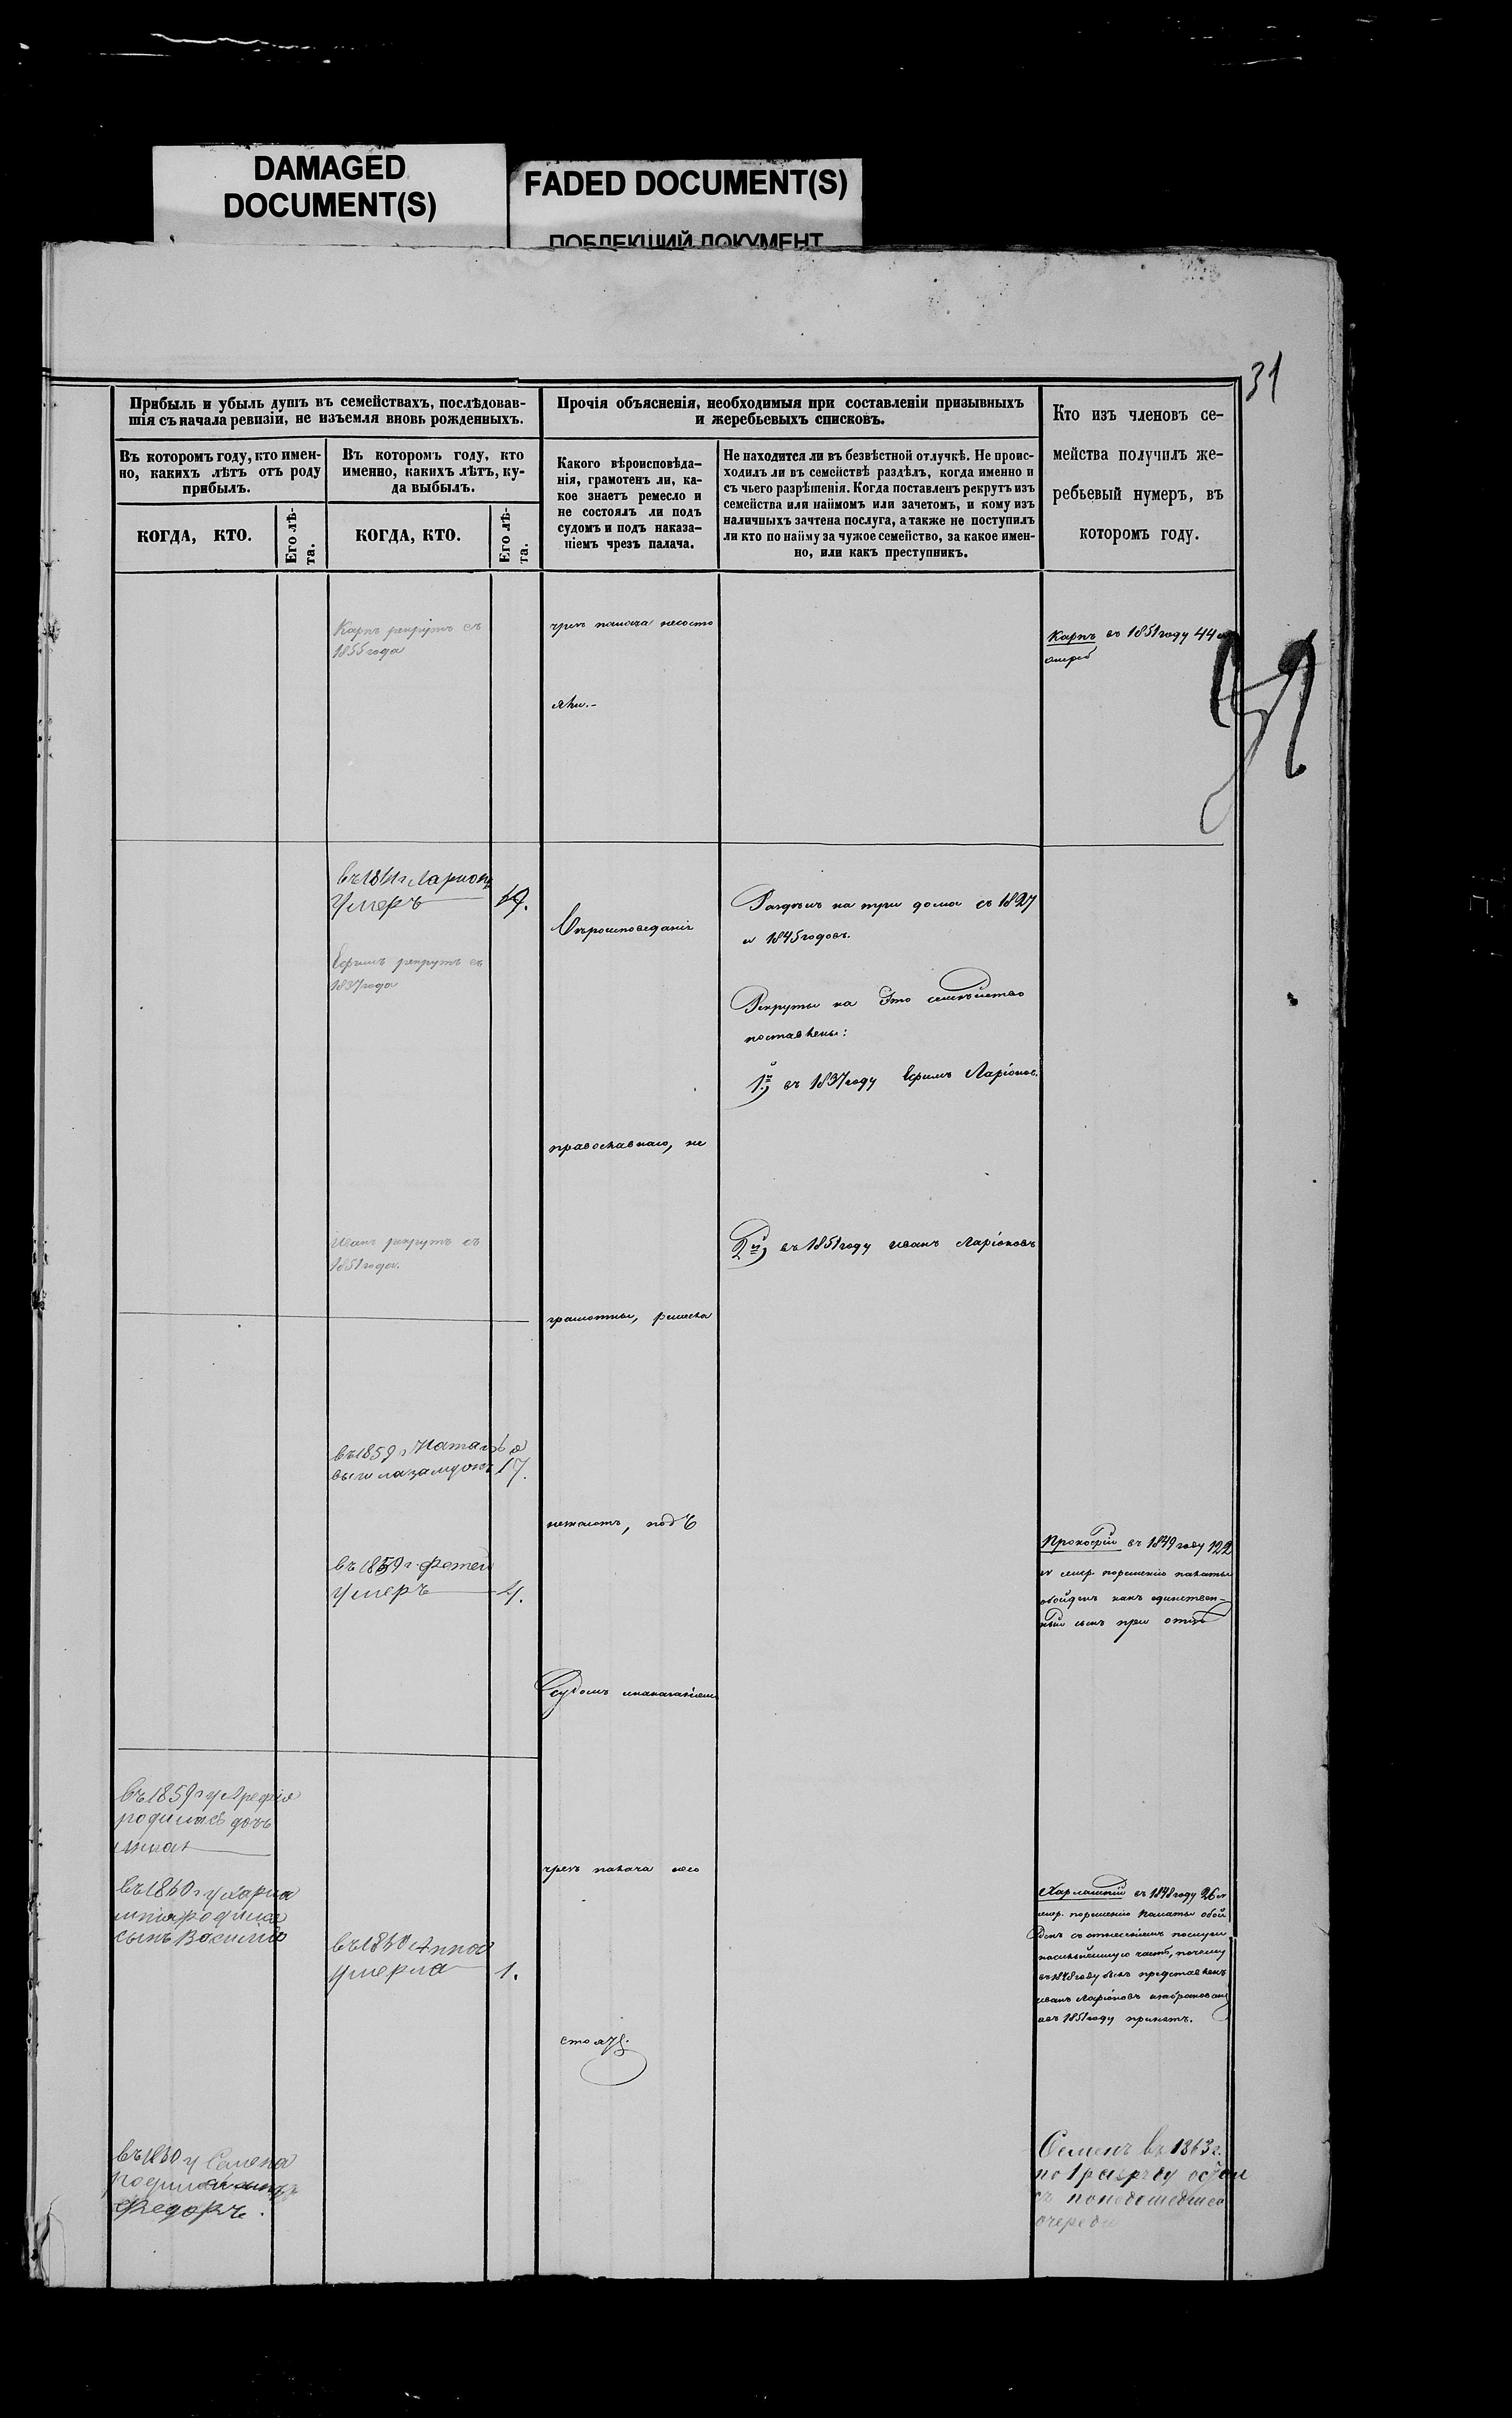 DAMAGED
DOCUMENT(S)
FADED DOCUMENT(S)
ПОБЛЕКШИЙ ДОКУМЕНТ
31
Прибыль и убыль душъ въ семействахъ, послѣдовав-
шія съ начала ревизіи, не изъемля вновь рожденныхъ.
Въ которомъ году, кто имен-
но, какихъ лѣтъ отъ роду
прибылъ.
КОГДА, КТО.
Его лѣ-
та.
Въ которомъ году, кто
именно, какихъ лѣтъ, ку-
да выбылъ.
КОГДА, КТО.
Его лѣ-
та.
Прочія объясненія, необходимыя при составленіи призывныхъ
и жеребьевыхъ списковъ.
Какого вѣроисповѣда-
нія, грамотенъ ли, ка-
кое знаетъ ремесло и
не состоялъ ли подъ
судомъ и подъ наказа-
ніемъ чрезъ палача.
Не находится ли въ безвѣстной отлучкѣ. Не проис-
ходилъ ли въ семействѣ раздѣлъ, когда именно и
съ чьего разрѣшенія. Когда поставленъ рекрутъ изъ
семейства или наймомъ или зачетомъ, и кому изъ
наличныхъ зачтена послуга, а также не поступилъ
ли кто по найму за чужое семейство, за какое имен-
но, или какъ преступникъ.
Кто изъ членовъ се-
мейства получилъ же-
ребьевый нумеръ, въ
которомъ году.
Карпъ рекрутъ съ
1855 года
чрезъ палача несосто
яли.-
Карпъ въ 1851 году 44
въ 1861 г Ларионъ
Умеръ
Ефимъ рекрутъ съ
1837 года
Вѣроисповеданія
Раздѣлъ на три дома съ 1827
и 1845 годовъ.
Рекруты на Это семѣйство
поставлены:
1й въ 1837 году Ефимъ Ларіонов.
православнаго, не
Иванъ рекрутъ съ
1851 года.
2й въ 1851 году Иванъ Ларіоновъ
грамотны, ремесла
въ 1859 г Наталья
вышла замужъ 17.
незнаютъ, подъ
въ 1859 г. Фетей
Умеръ 4.
Прокофій въ 1849 году 122
порешенію палаты
обойденъ какъ единствен-
ный сынъ при отцѣ
Судомъ инаказаніемъ
въ 1859 г у Арефія
родилась дочь
Анна
чрезъ палача несо
въ 1860 г у Харла
мпія родился
сынъ Василій
въ 1860 Анна
умерла 1.
Харлампій въ 1848 году 26
порешенію Палаты обой
денъ съ отнесеніемъ послуги
часть, почему
въ 1848 году былъ представленъ
Иванъ Ларіоновъ изабракованъ
авъ 1851 году принятъ.
стояли.
въ 1860 у Семена
родился сынъ
Федоръ.
Семенъ въ 1863 г.
по 1 разряду
понедошедшей
очереди